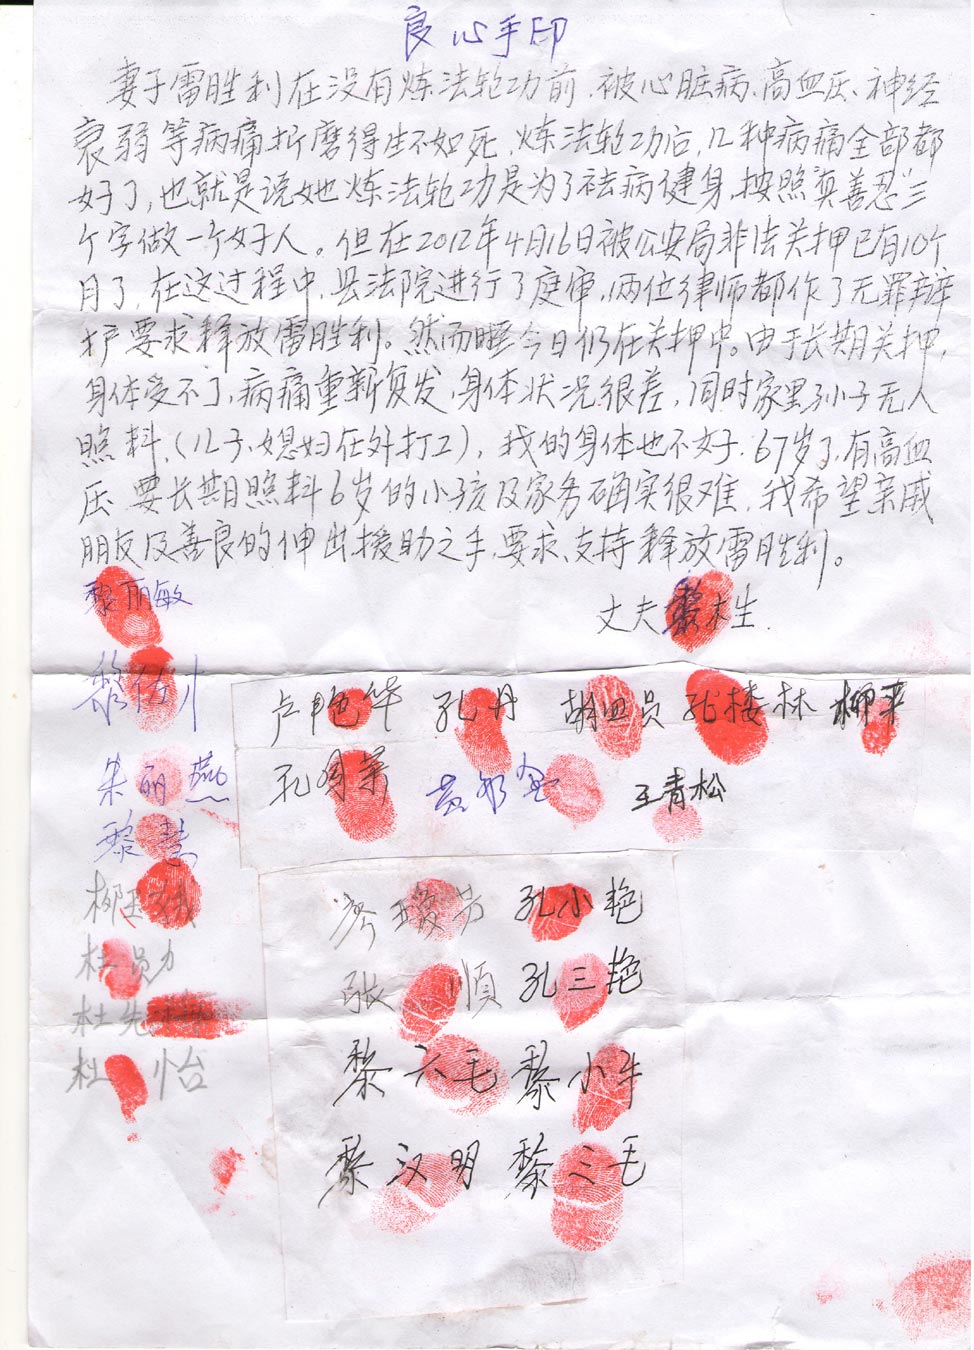 良心手印
妻子雷胜利在没有炼法轮功前、被心脏病、高血压、神经
衰弱等病痛折磨得生不如死，炼法轮功后，几种病痛全部都
好了，也就是说她炼法轮功是为了祛病健身，按照"真善忍"三
个字做一个好人。但在2012年4月16日被公安局非法关押已有10个
月了，在这过程中，县法院进行了庭审，两位律师都作了无罪辩
护要求释放雷胜利。然而 今日仍在关押中。由于长期关押，
身体受不了，病痛重新复发，身体状况很差，同时家里孙子无人
照料、（儿子、媳妇在外打工），我的身体也不好，67岁了，有高血
压，要长期照料6岁的小孩及家务确实很难，我希望亲戚
朋友及善良的伸出援助之手，要求、支持释放雷胜利。
丈夫黎木生.
黎丽敏
卢艳华 孔丹 孔楼林 柳平
朱丽燕
王青松
黎慧
孔小艳
杜勋力
张顺 孔三艳
杜先
杜怡
黎六毛 黎小牛
黎汉明 黎三毛